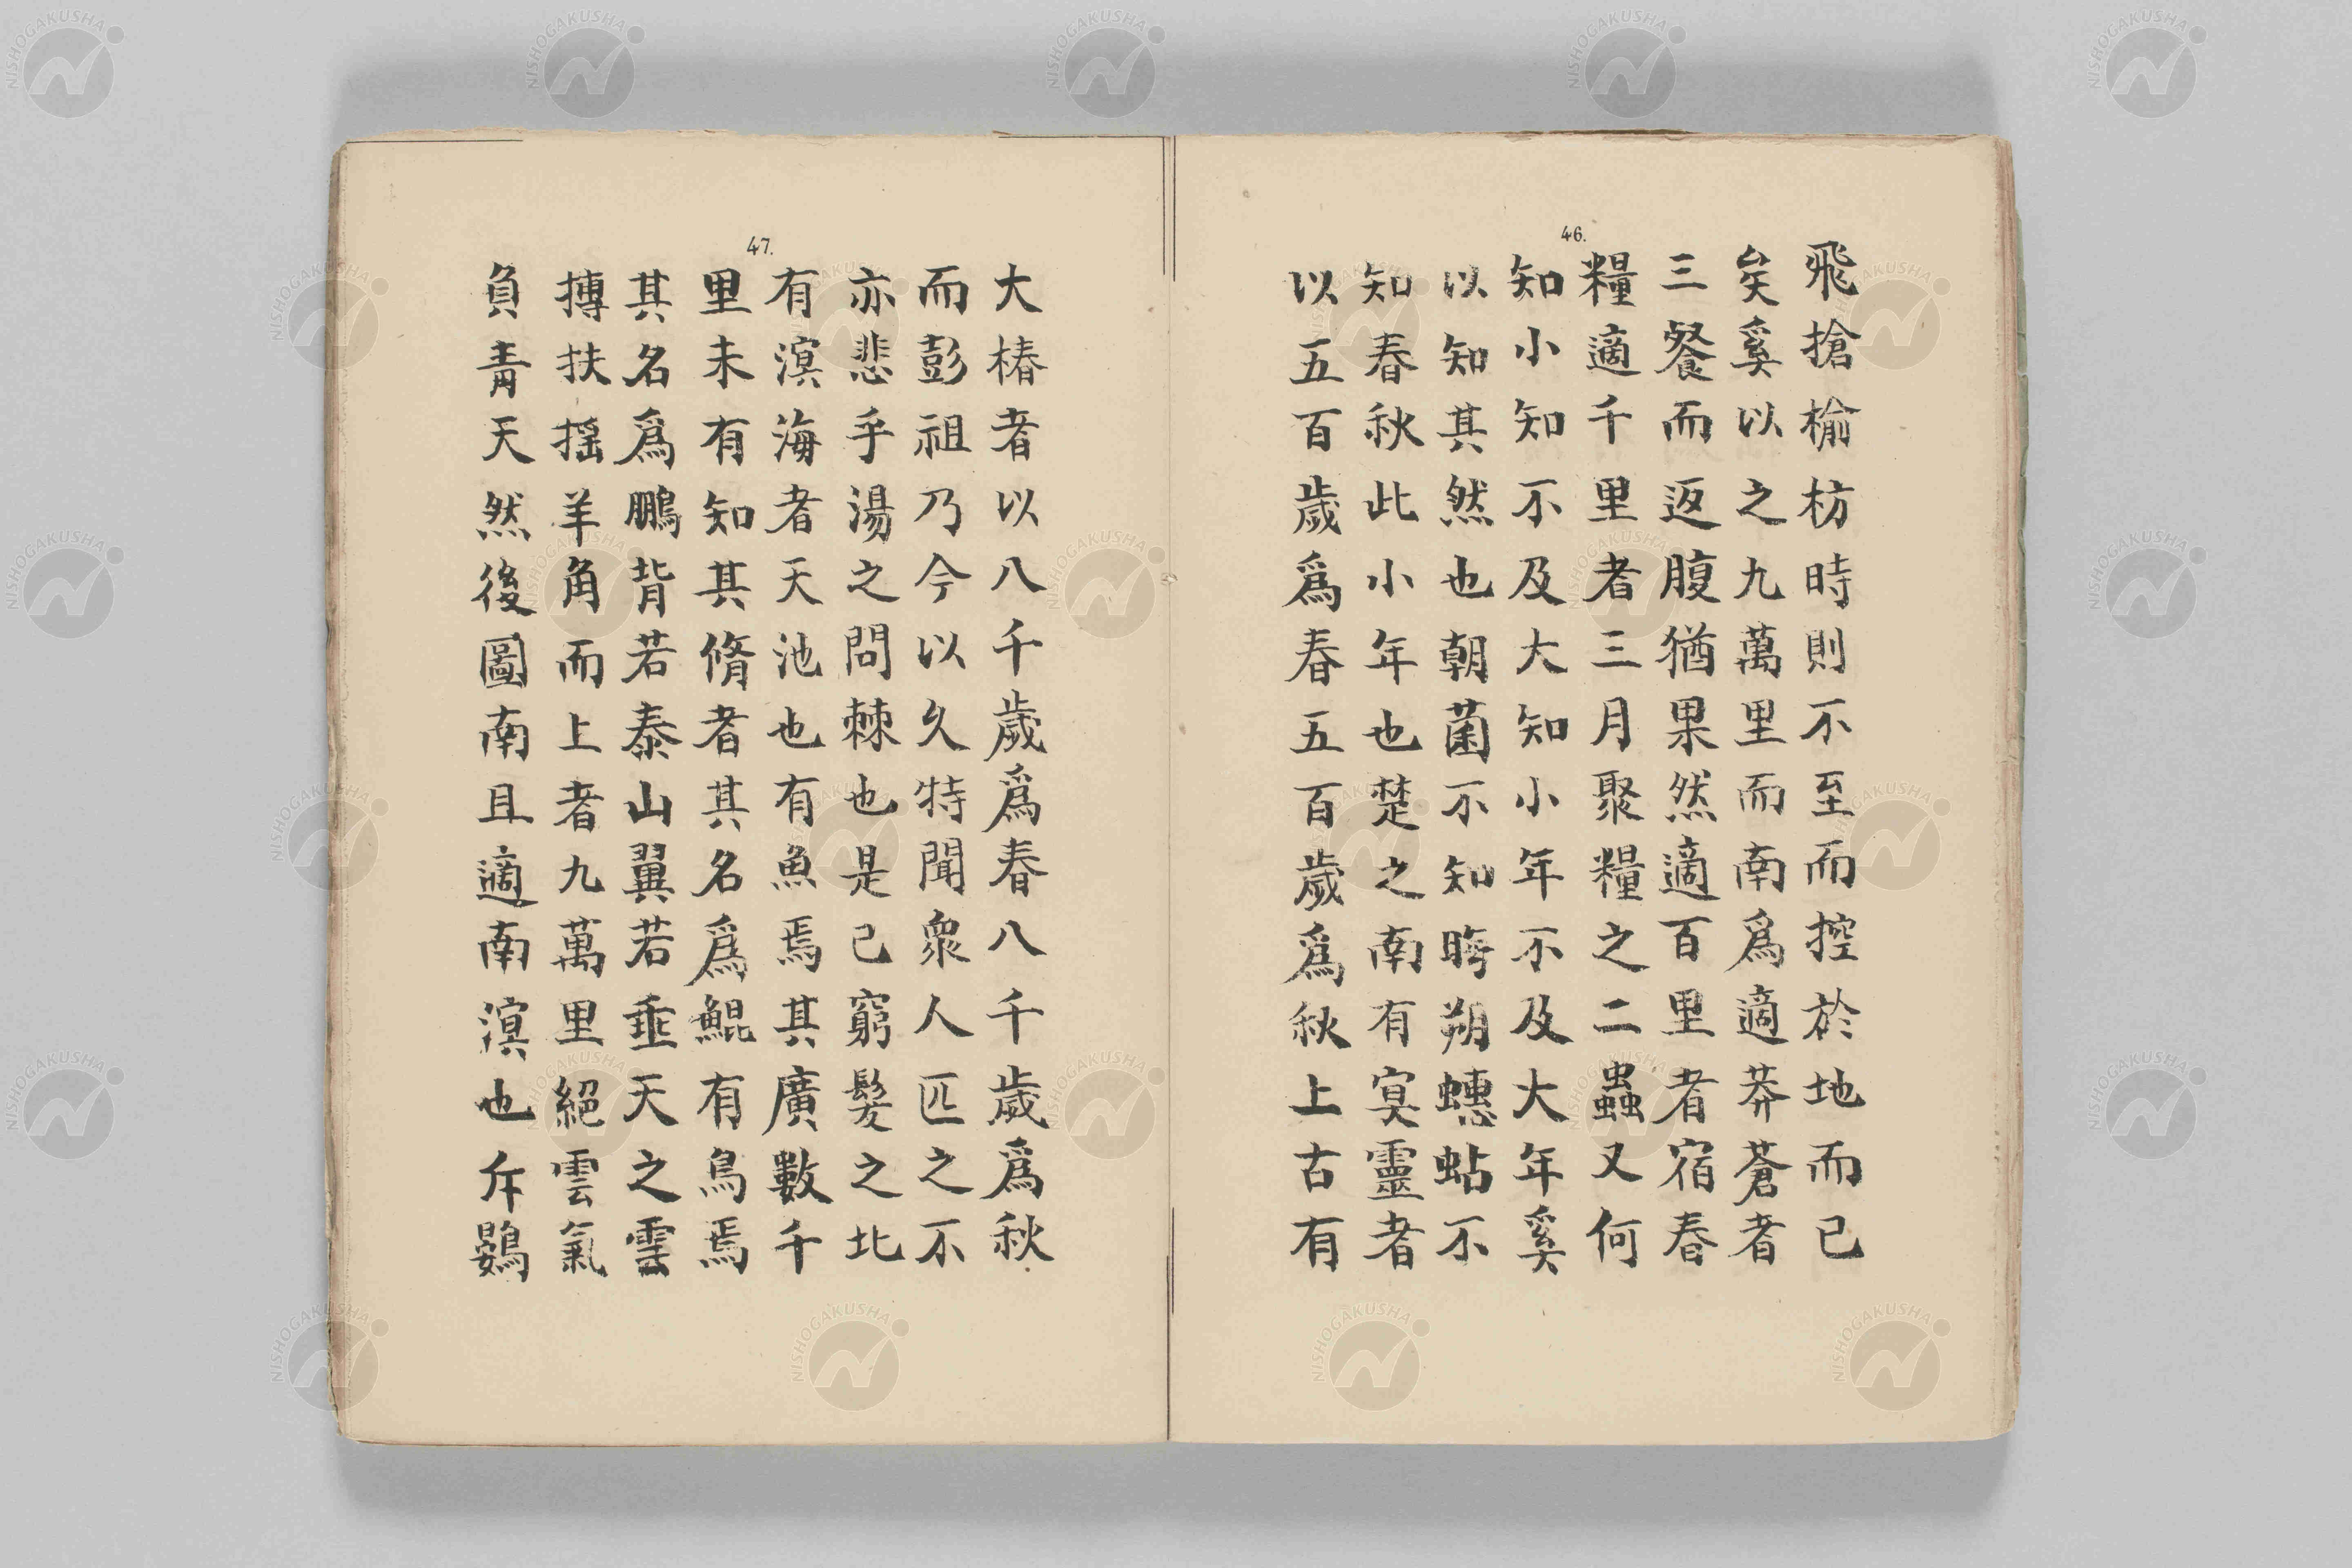 46.
飛搶榆枋時則不至而控於地而已
矣奚以之九萬里而南爲適莽蒼者
三餐而返腹猶果然適百里者宿春
糧適千里者三月聚糧之二蟲又何
知小知不及大知小年不及大年奚
以知其然也朝菌不知晦朔蟪蛄不
知春秋此小年也楚之南有冥靈者
以五百歲爲春五百歲爲秋上古有
47.
大椿者以八千歲爲春八千歲爲秋
而彭祖乃今以久特聞衆人匹之不
亦悲乎湯之問棘也是已窮髮之北
有溟海者天池也有魚焉其廣數千
里未有知其脩者其名爲鯤有鳥焉
其名爲鵬背若泰山翼若垂天之雲
摶扶搖羊角而上者九萬里絕雲氣
負青天然後圖南且適南溟也斥鷃
NISHOGAKUSHA